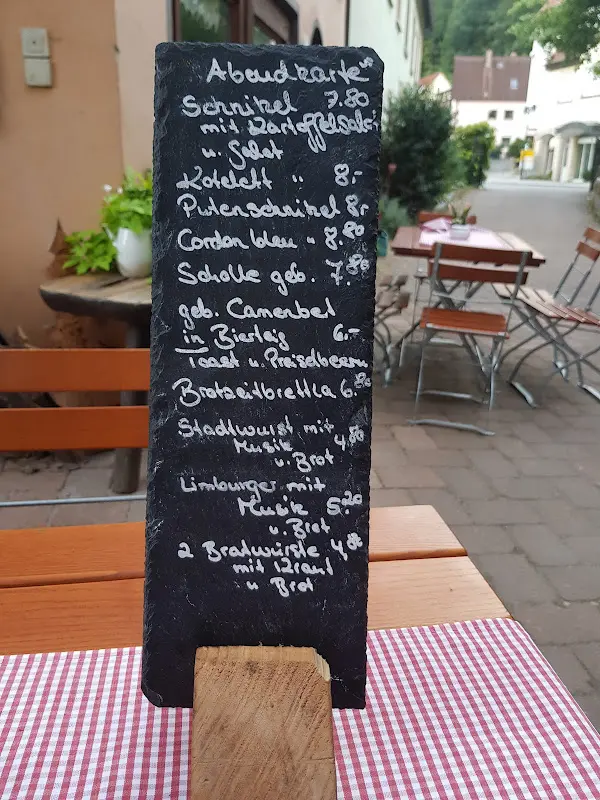 Abendkarte
Schnitzel 7.80
mit Kartoffelsal.
u. Salat
Kotelett " 8,-
Putenschnitzel 8,-
Cordon bleu " 8.80
Scholle geb. 7.80
geb. Camenbet
in Bierteig 6.-
Toast u. Preiselbeern
Brotzeitbrettla 6.80
Stadtwurst mit
Musik 4,80
u. Brot
Limburger mit
Musik 5.20
u. Brot
2 Bratwürste 4,80
mit Kraut
u Brot